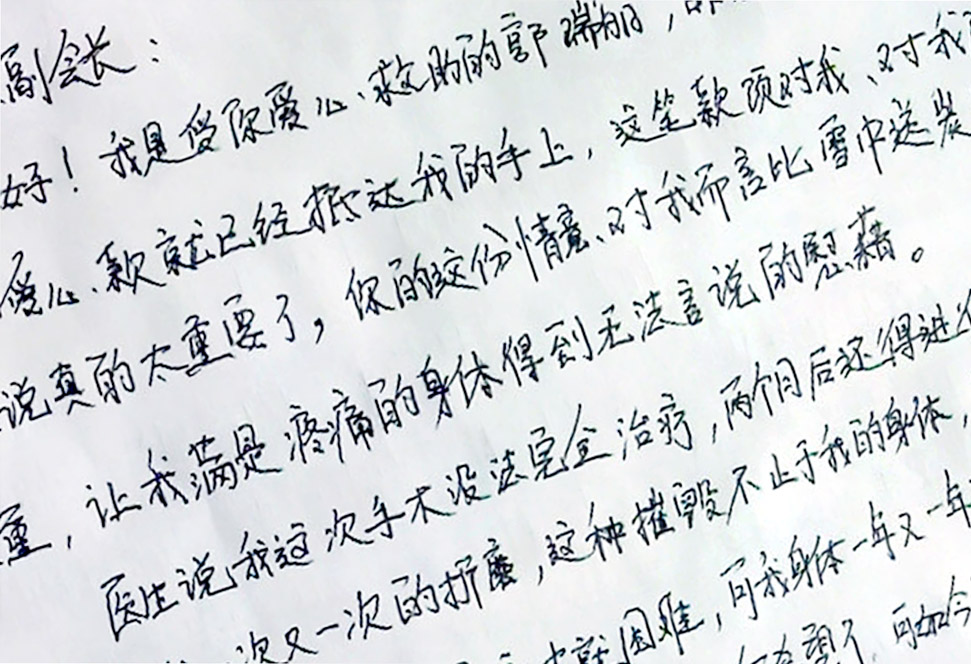 副会长：
好！我是受你爱心救助的郭瑞丽，
爱心款就已经抵达我的手上，这笔款项对我、对我
说真的太重要了，你的这份情意、对我而言比雪中送炭
重，让我满是疼痛的身体得到无法言说的慰藉。
医生说我这次手术没法完全治疗，两个月后还得进行
次又一次的折磨，这种摧毁不止于我的身体，
就困难，可我身体一年又一年
可如今